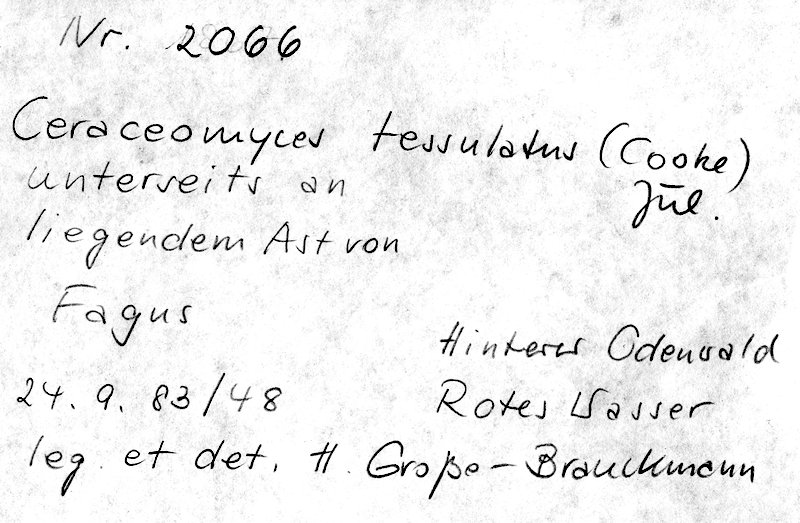 Nr. 2066
Ceraceomyces tessulatus (Cooke) Jül.
unterseits an
liegendem Ast von
Fagus
Hinterer Odenwald
Rotes Wasser
24. 9. 83/48
leg. et det. H. Große-Brauckmann